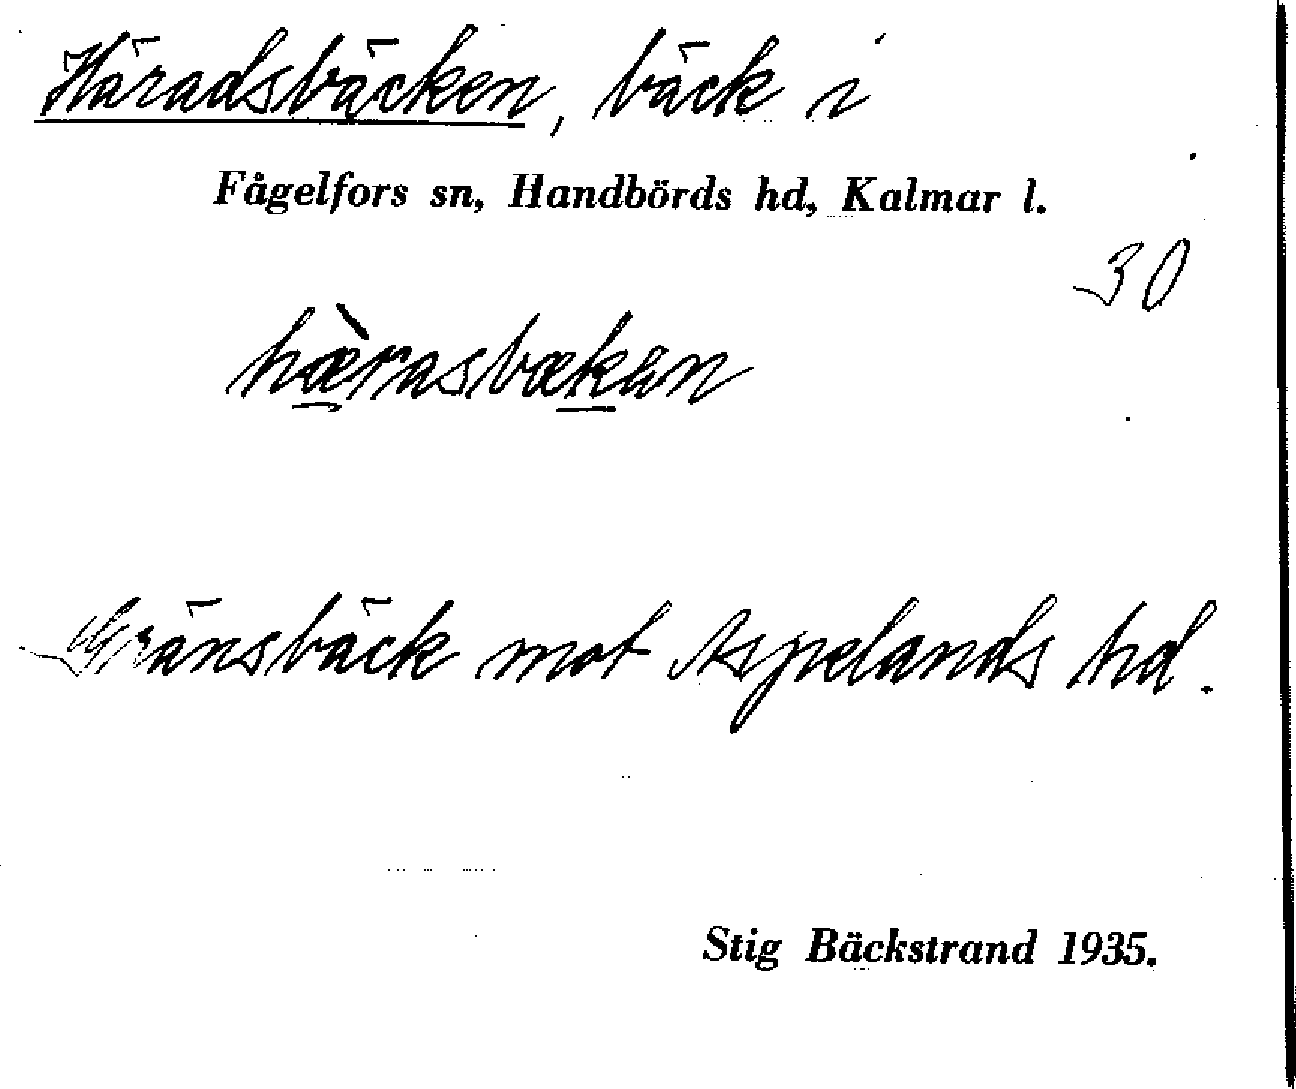 Häradsbäcken, bäck i
Fågelfors sn, Handbörds hd, Kalmar l.
30
hæ̀rasbækan
Gränsbäck mot Aspelands hd.
Stig Bäckstrand 1935.